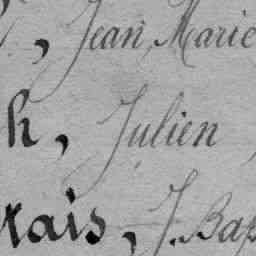 , Jean Marie
h, Julien
rais, J. Bap